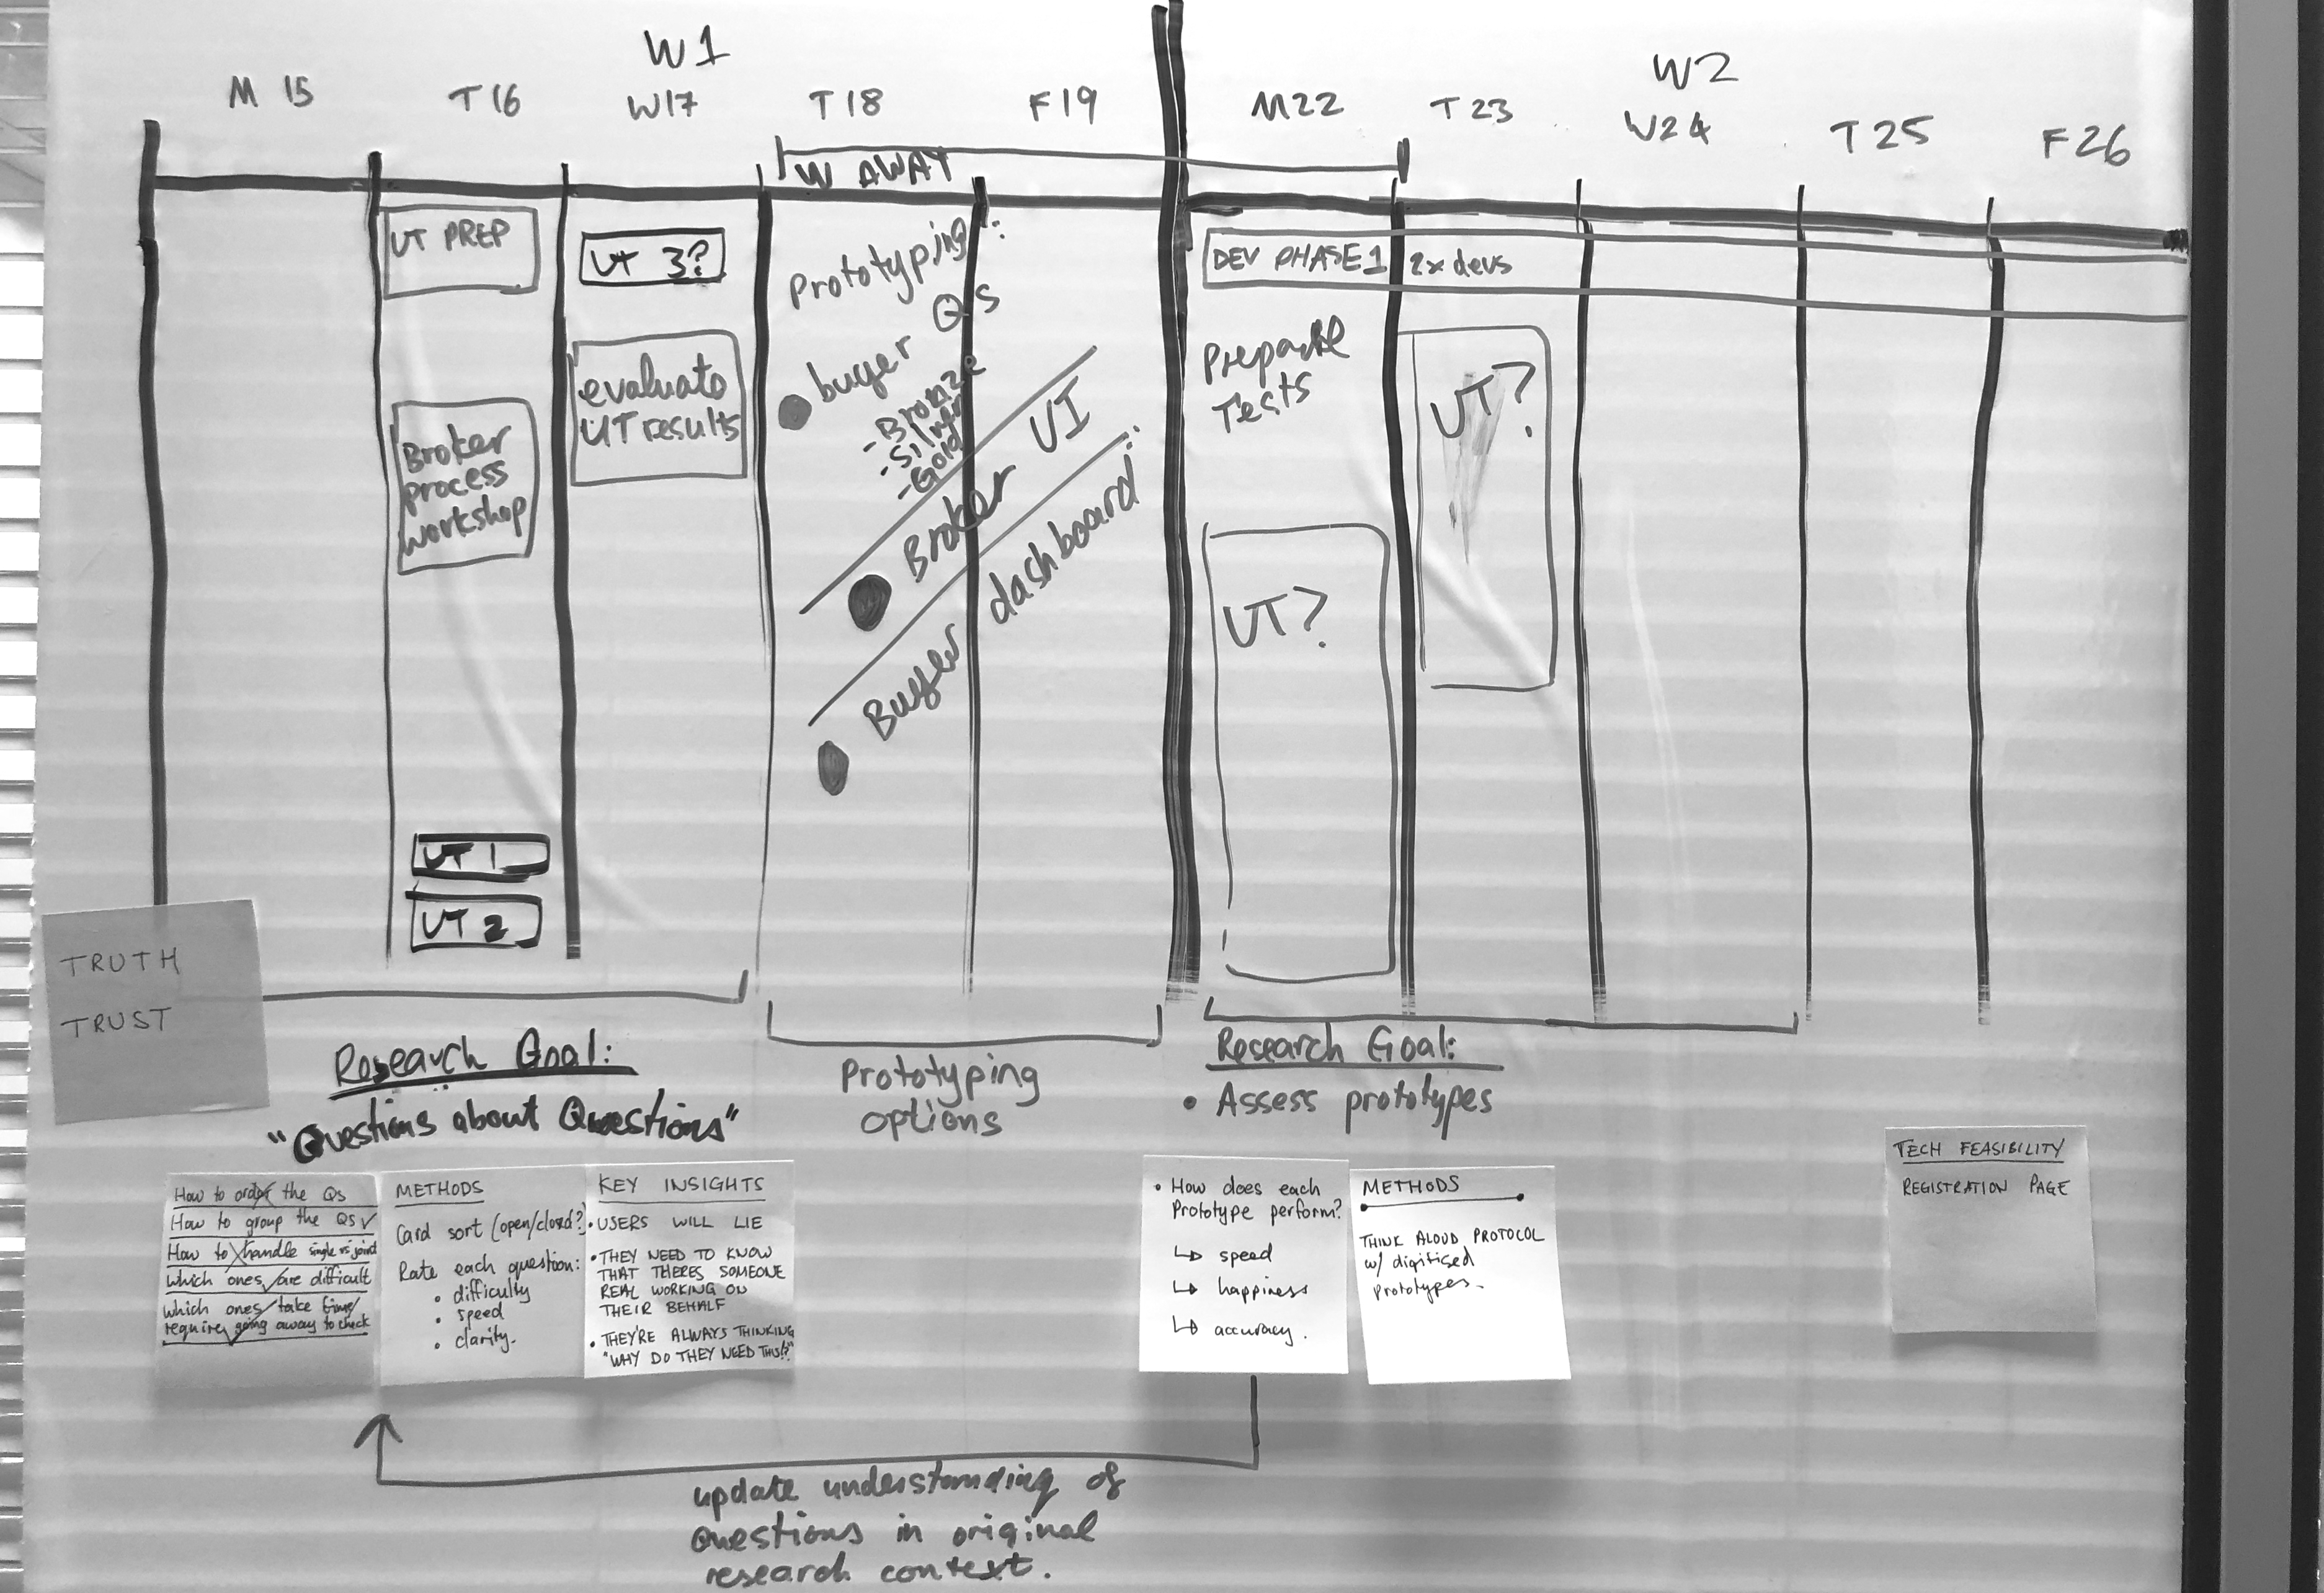 W1
W2
M 15
T 16
W17
T 18
F 19
M22
T 23
W24
T 25
F 26
W AWAY
UT PREP
Broker
process
workshop
UT 1
UT 2
UT 3?
evaluate
UT results
Prototyping:
buyer Qs
- Bronze
- Silver
- Gold
Broker UI
Buyer dashboard
DEV PHASE 1 2x devs
Prepare
Tests
UT?
UT?
TRUTH
TRUST
Research Goal:
"Questions about Questions"
Prototyping
options
Research Goal:
• Assess prototypes
How to order the Qs
How to group the Qs ✓
How to handle single vs joint
which ones are difficult
which ones take time/
require going away to check
METHODS
Card sort (open/closed?)
Rate each question:
• difficulty
• speed
• clarity.
KEY INSIGHTS
• USERS WILL LIE
• THEY NEED TO KNOW
THAT THERES SOMEONE
REAL WORKING ON
THEIR BEHALF
• THEY'RE ALWAYS THINKING
"WHY DO THEY NEED THIS!?"
• How does each
Prototype perform?
↳ speed
↳ happiness
↳ accuracy.
METHODS
THINK ALOUD PROTOCOL
w/ digitised
prototypes.
TECH FEASIBILITY
REGISTRATION PAGE
update understanding of
questions in original
research context.